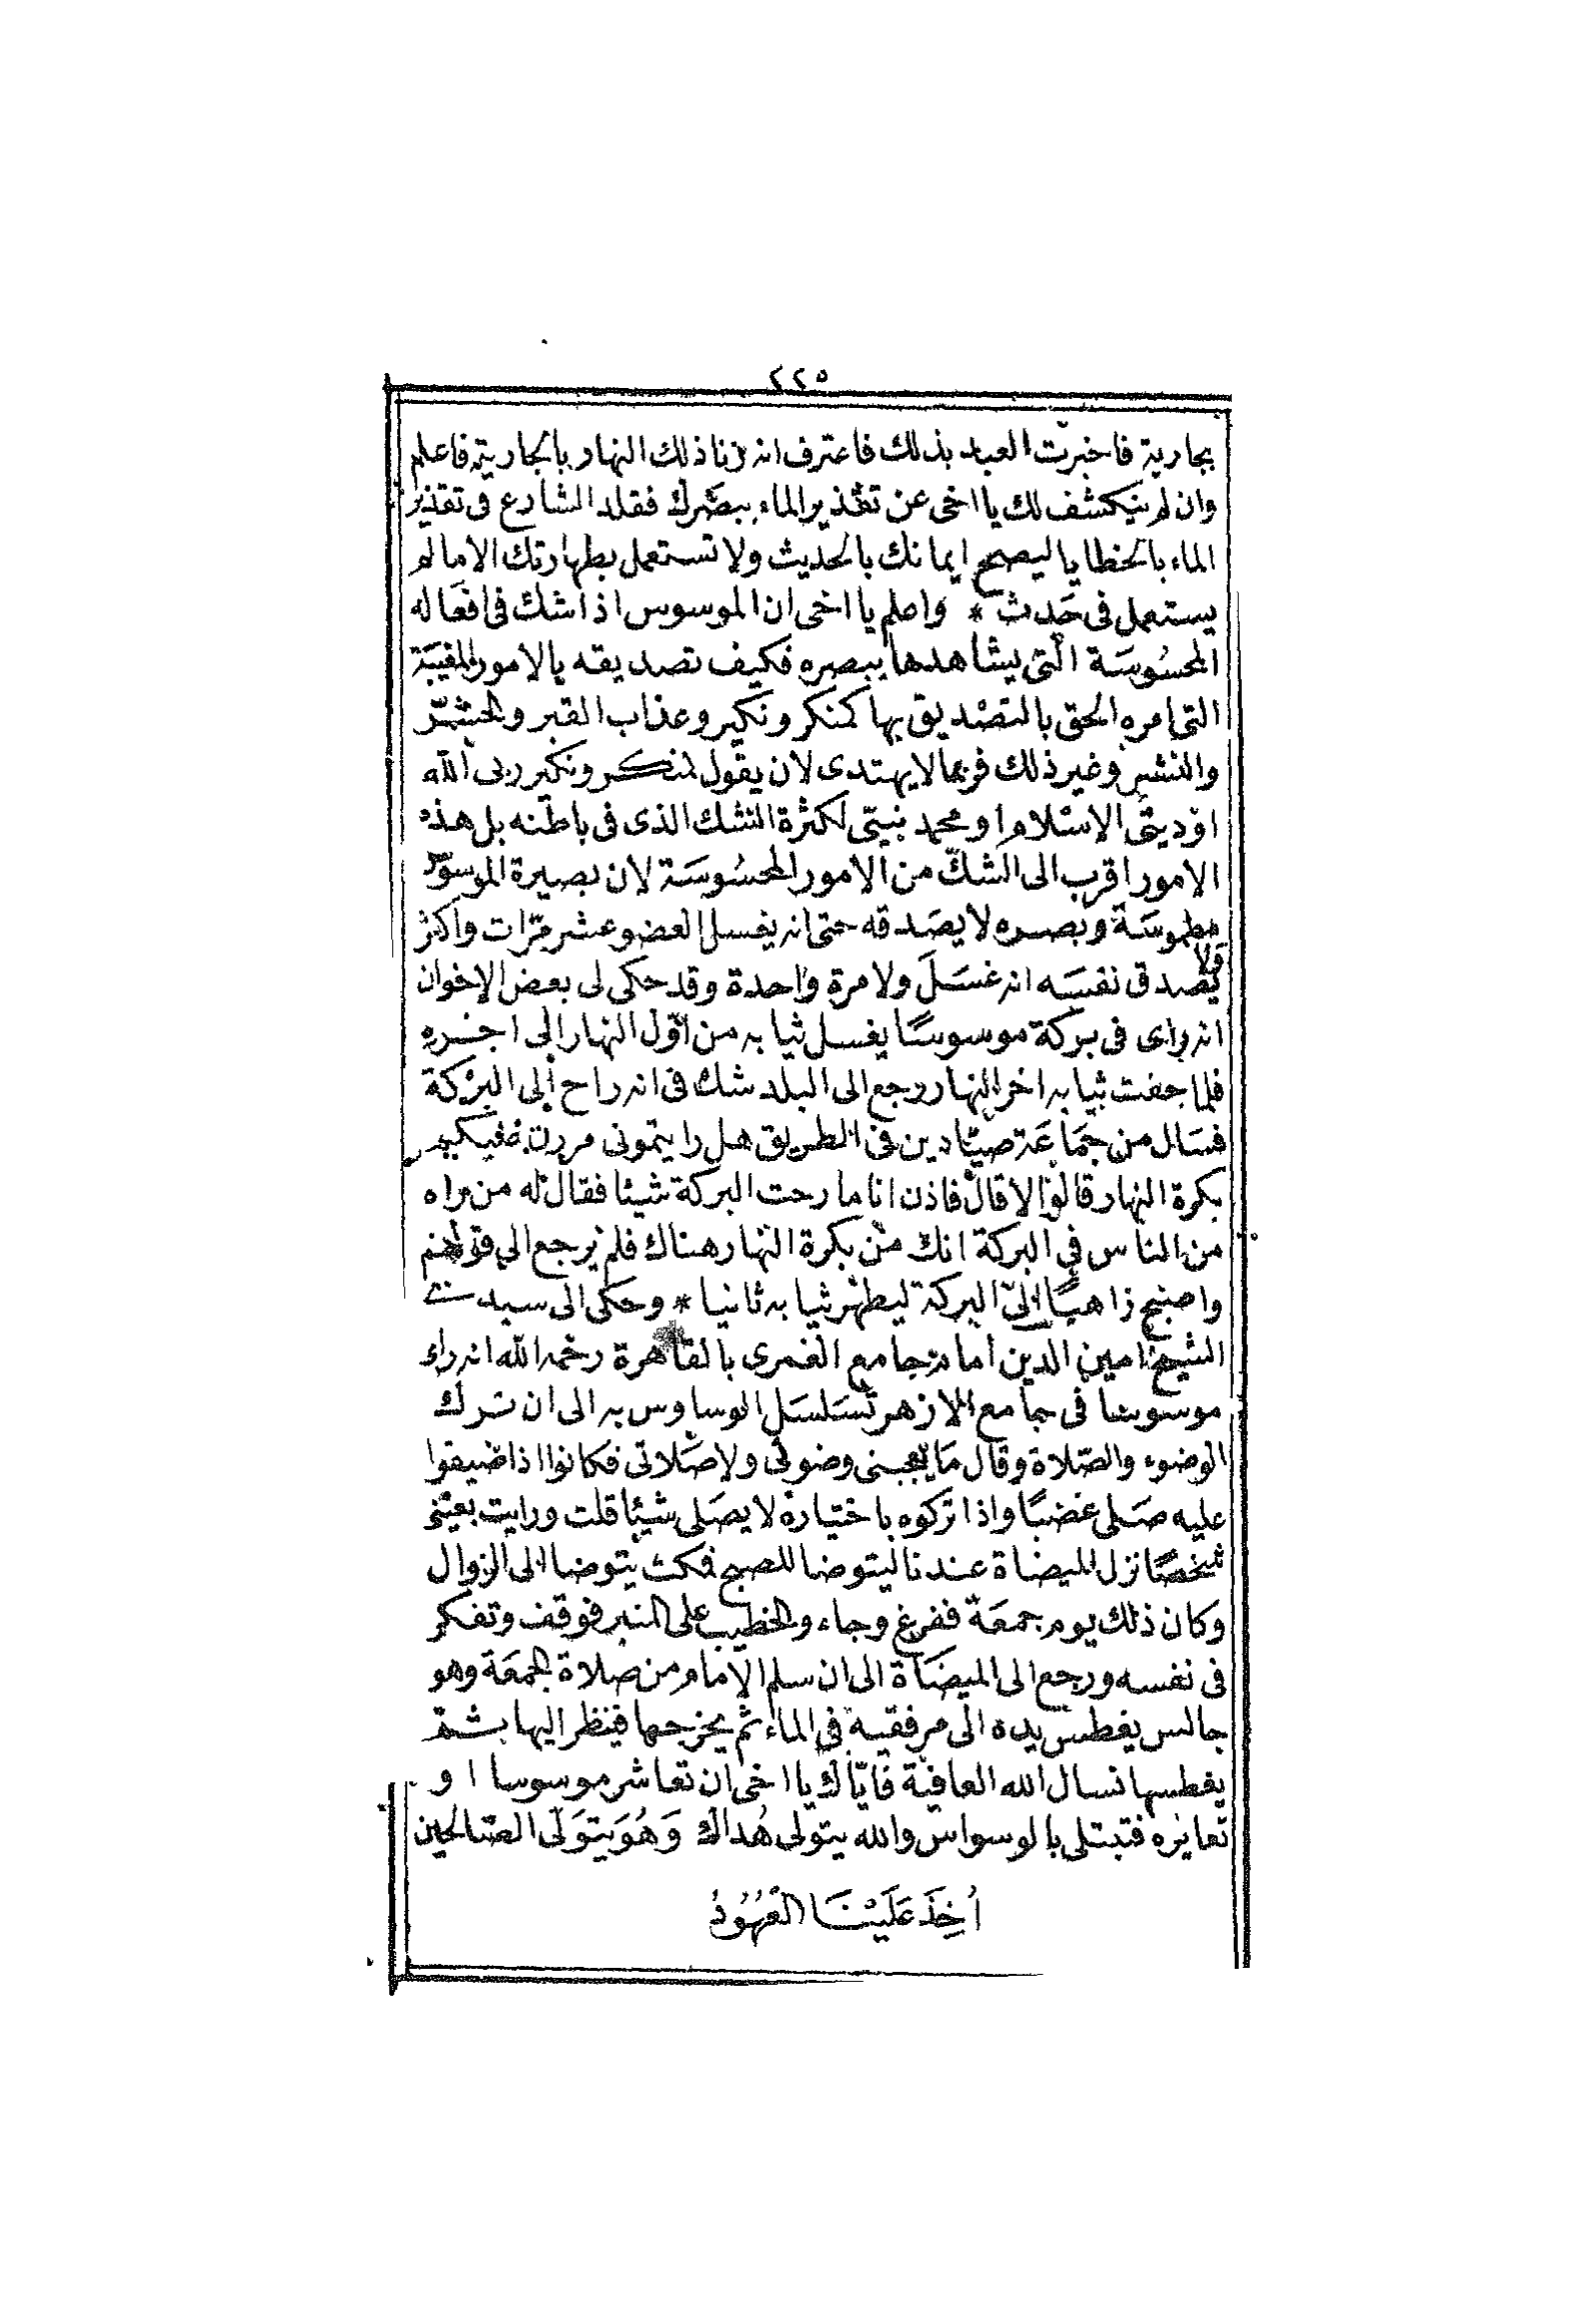 ٢٢٥
بجارية فاخبرت العبد بذلك فاعترف انه زنا ذلك النهار بالجارية فاعلم
وان لم ينكشف لك يا اخى عن تقذير الماء ببصرك فقلد الشارع فى تقذير
الماء بالخطايا ليصح ايمانك بالحديث ولا تستعمل بطهارتك الا ما لم
يستعمل فى حدث * واعلم يا اخى ان الموسوس اذا شك فى افعاله
المحسُوسَة التى يشاهدها ببصره فكيف تصديقه بالامور المغيبة
التى امره الحق بالتصديق بها كمنكر ونكير وعذاب القبر والحشر
والنشر وغير ذلك فربما لا يهتدى لان يقول لمنكر ونكير ربى الله
او دينى الاسلام او محمد نبيى لكثرة الشك الذى فى باطنه بل هذه
الامور اقرب الى الشك من الامور المحسُوسَة لان بصيرة الموسوس
مطموسَة وبصره لا يصَدقه حتى انه يغسل العضو عشر مرّات واكثر
فلا يصدق نفسَه انه غسَلَ ولا مرة واحدة وقد حكى لى بعض الاخوان
انه راى فى بركة موسوسًا يغسل ثيابه من اوّل النهار الى اخره
فلما جفت ثيابه اخر النهار رجع الى البلد شك فى انه راح الى البركة
فسَال من جمَاعَة صيّادين فى الطريق هل رايتمونى مررت عليكم
بكرة النهار قالوا لا قال فاذن انا ما رحت البركة شيئا فقال له من راه
من الناس فى البركة انك من بكرة النهار هناك فلم يرجع الى قولهم
واصبح ذاهبًا الى البركة ليطهر ثيابه ثانيا * وحكى الى سيدى
الشيخ امين الدين امام جامع الغمرى بالقاهرة رحمه الله انه راى
موسوسا فى جامع الازهر تسَلسَل الوساوس به الى ان ترك
الوضوء والصّلاة وقال مَا يعجبنى وضوئى ولا صَلاتى فكانوا اذا ضيقوا
عليه صَلى غضبًا واذا تركوه باختياره لا يصَلى شيئا قلت ورايت بعينى
شخصًا نزل لليضاة عندنا ليتوضا للصبح فمكث يتوضا الى الزوال
وكان ذلك يوم جمعَة ففرغ وجاء والخطيب على المنبر فوقف وتفكر
فى نفسه ورجع الى الميضَاة الى ان سلم الامام من صلاة الجمعَة وهو
جالس يغطس يده الى مرفقيه فى الماء ثم يخرجها فينظر اليها ثم
يغطسها نسال الله العافية فايّاك يا اخى ان تعاشر موسوسا او
تعايره فتبتلى بالوسواس والله يتولى هُداك وَهُوَ يتوَلّى الصّالحين
اُخِذَ عَلَيْنَا العُهُودُ